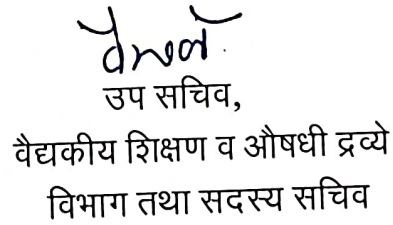 उप सचिव,
वैद्यकीय शिक्षण व औषधी द्रव्ये
विभाग तथा सदस्य सचिव